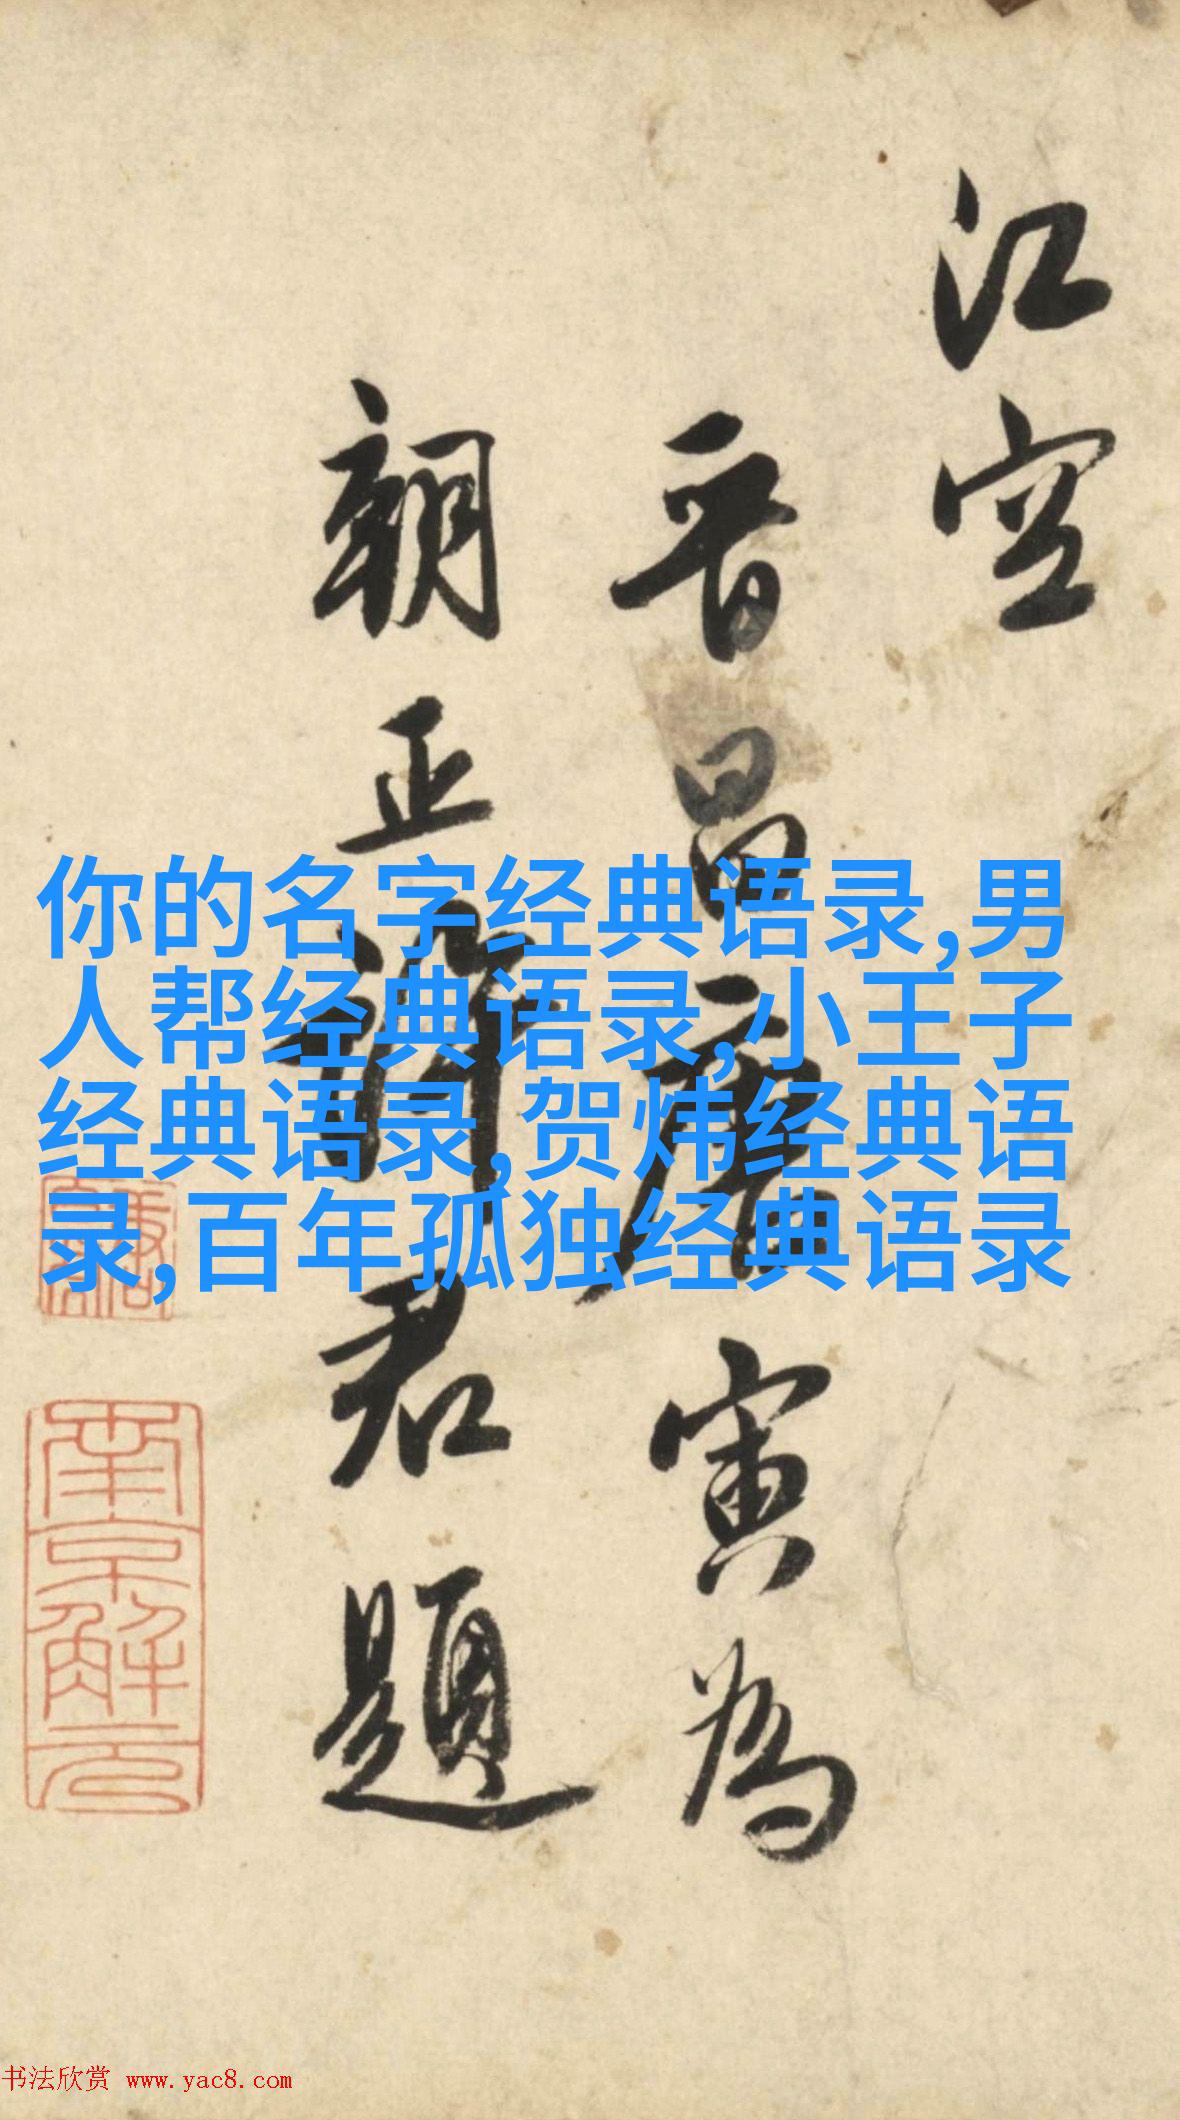 江空
晋昌唐寅为
朝正谢君题
你的名字经典语录,男
人帮经典语录,小王子
经典语录,贺炜经典语
录,百年孤独经典语录
南京解元
书法欣赏 www.yac8.com